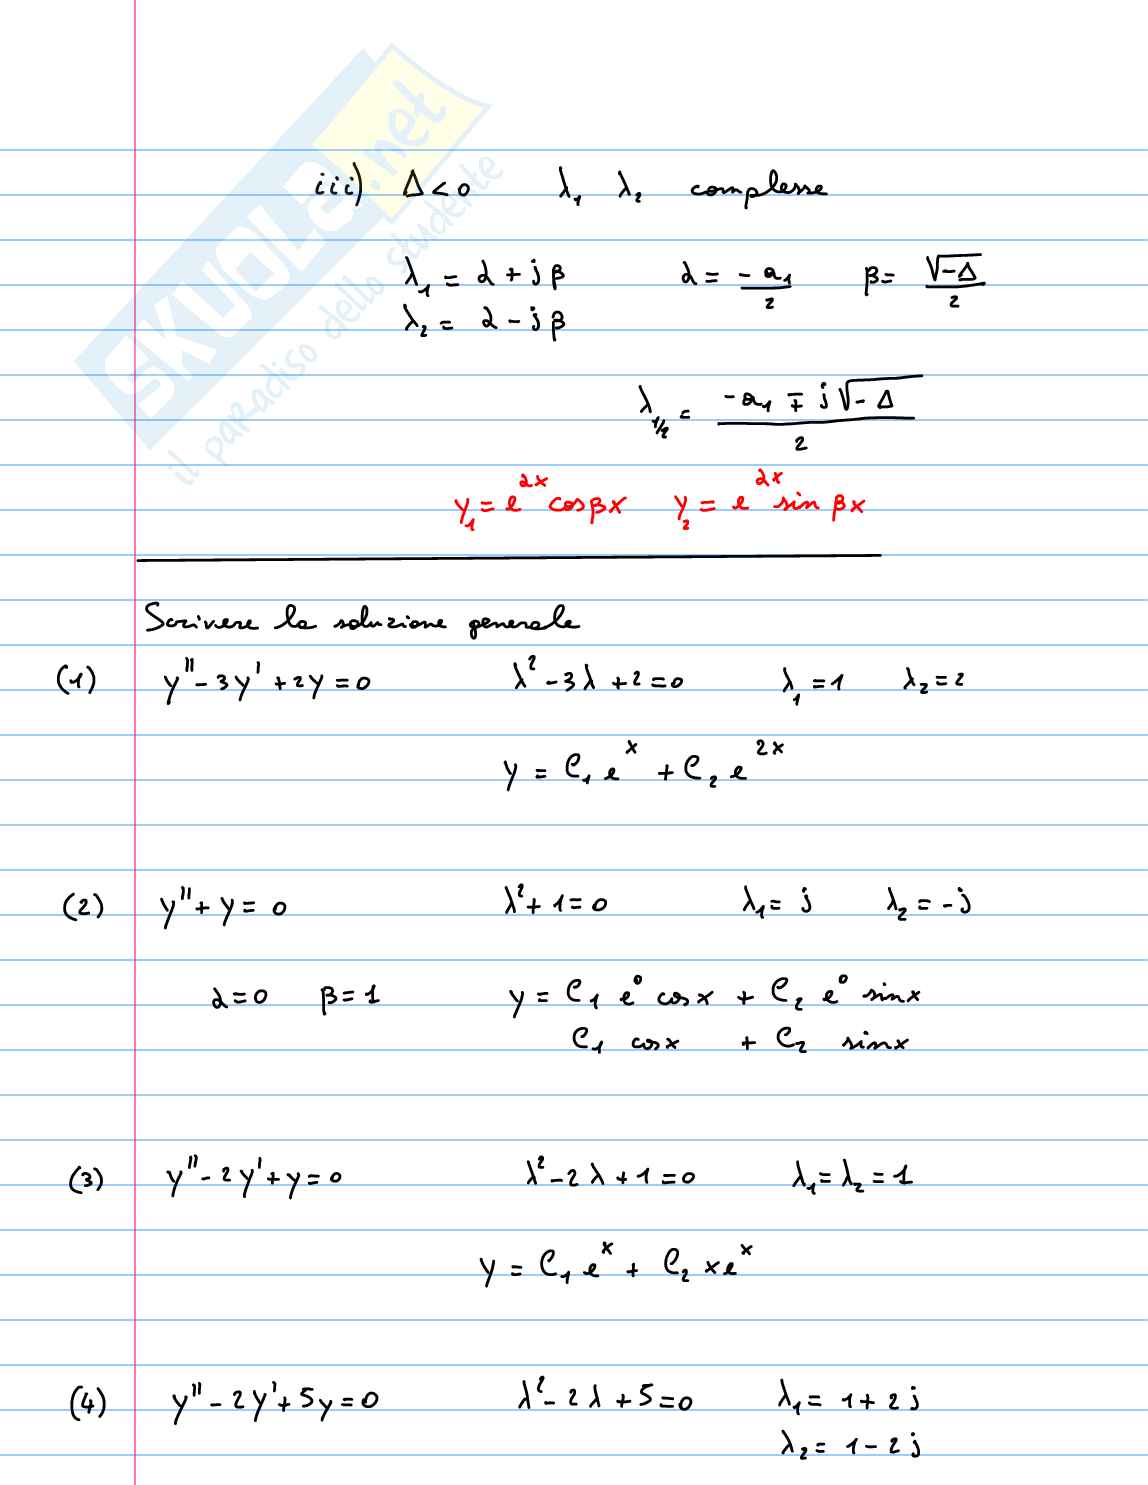 SKUOLA.net
il paradiso dello studente
iii) Δ<0 λ₁ λ₂ complesse
λ₁ = α + jβ α = -a₁/2 β = √-Δ/2
λ₂ = α - jβ
λ₁/₂ = (-a₁ ∓ j√-Δ)/2
y₁ = e^αx cosβx y₂ = e^αx sin βx
Scrivere la soluzione generale
(1) y'' - 3y' + 2y = 0 λ² - 3λ + 2 = 0 λ₁ = 1 λ₂ = 2
y = C₁ e^x + C₂ e^2x
(2) y'' + y = 0 λ² + 1 = 0 λ₁ = j λ₂ = -j
α = 0 β = 1 y = C₁ e⁰ cosx + C₂ e⁰ sinx
C₁ cosx + C₂ sinx
(3) y'' - 2y' + y = 0 λ² - 2λ + 1 = 0 λ₁ = λ₂ = 1
y = C₁ e^x + C₂ xe^x
(4) y'' - 2y' + 5y = 0 λ² - 2λ + 5 = 0 λ₁ = 1 + 2j
λ₂ = 1 - 2j